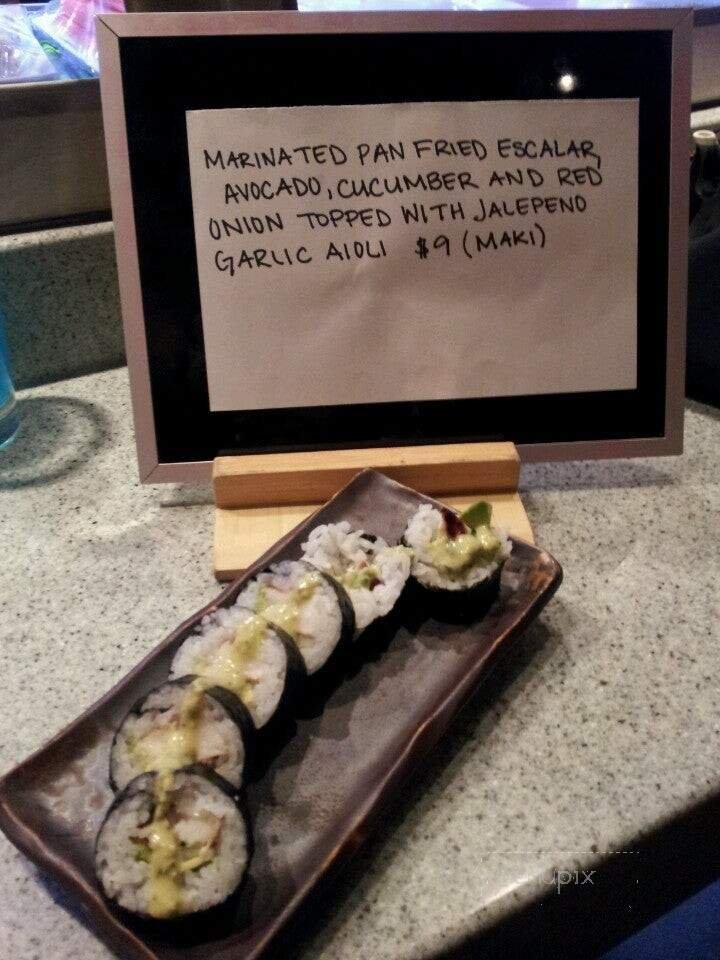 MARINATED PAN FRIED ESCALAR,
AVOCADO, CUCUMBER AND RED
ONION TOPPED WITH JALEPENO
GARLIC AIOLI $9 (MAKI)